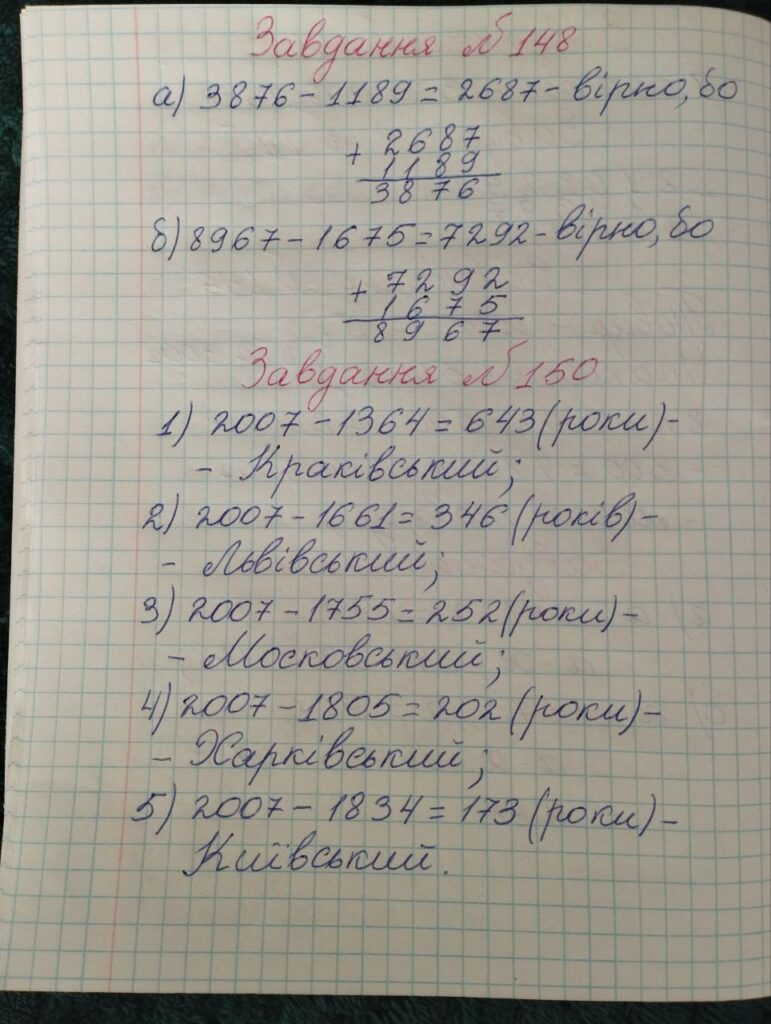 Завдання № 148
а) 3876 - 1189 = 2687 - вірно, бо
+ 2687
1189
3876
б) 8967 - 1675 = 7292 - вірно, бо
+ 7292
1675
8967
Завдання № 150
1) 2007 - 1364 = 643 (роки) -
- Краківський;
2) 2007 - 1661 = 346 (років) -
- Львівський;
3) 2007 - 1755 = 252 (роки) -
- Московський;
4) 2007 - 1805 = 202 (роки) -
- Харківський;
5) 2007 - 1834 = 173 (роки) -
Київський.